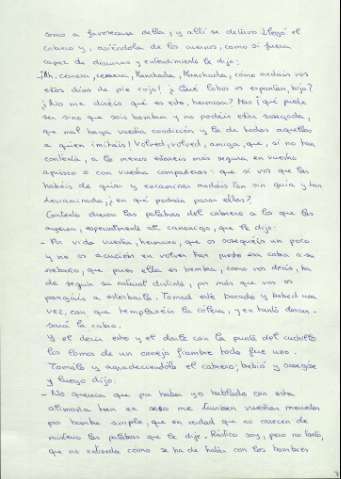 como a favorecerse della, y allí se detuvo. Llegó el
cabrero y, asiéndola de los cuernos, como si fuera
capaz de discurso y entendimiento le dijo:
- ¡Ah, cerrera, cerrera, Manchada, Manchada, cómo andáis vos
estos días de pie cojo! ¿Qué lobos os espantan, hija?
¿No me diréis qué es esto, hermosa? Mas ¡qué puede
ser sino que sois hembra y no podéis estar sosegada,
que mal haya vuestra condición y la de todas aquellas
a quien imitáis! Volved, volved, amiga, que, si no tan
contenta, a lo menos estaréis más segura en vuestro
aprisco o con vuestras compañeras: que si vos que las
habéis de guiar y encaminar andáis tan sin guía y tan
descaminada, ¿en qué podrán parar ellas?
Contento dieron las palabras del cabrero a los que las
oyeron, especialmente al canónigo, que le dijo:
- Por vida vuestra, hermano, que os soseguéis un poco
y no os acuciéis en volver tan presto esa cabra a su
rebaño, que pues ella es hembra, como vos decís, ha
de seguir su natural distinto, por más que vos os
pongáis a estorbarlo. Tomad este bocado y bebed una
vez, con que templaréis la cólera, y en tanto descan-
sará la cabra.
Y el decir esto y el darle con la punta del cuchillo
los lomos de un conejo fiambre todo fue uno.
Tomólo y agradeciólo el cabrero; bebió y sosegóse
y luego dijo:
- No querría que por haber yo hablado con esta
alimaña tan en seso me tuviesen vuestras mercedes
por hombre simple, que en verdad que no carecen de
misterio las palabras que le dije. Rústico soy, pero no tanto,
que no entienda cómo se ha de tratar con los hombres